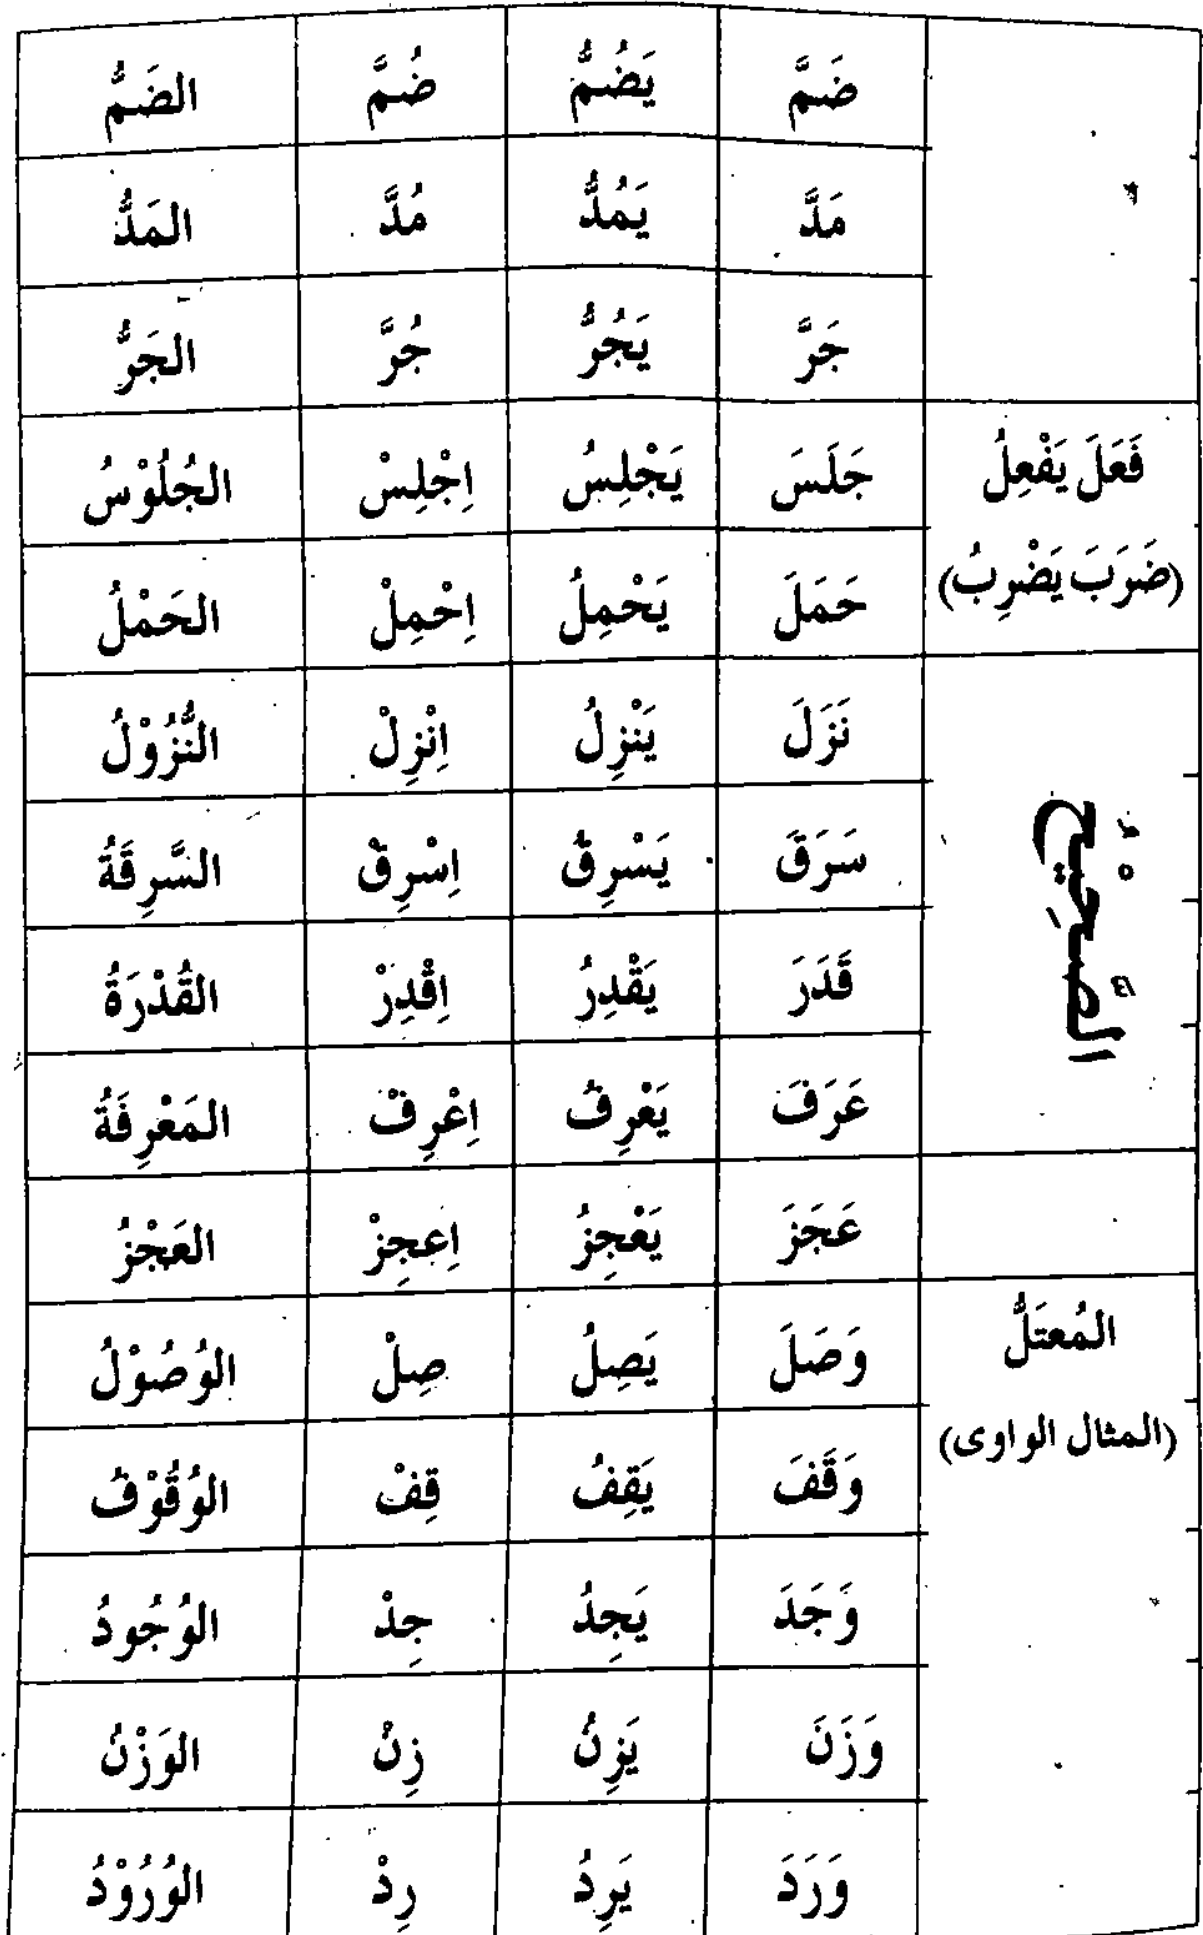 ضَمَّ يَضُمُّ ضُمَّ الضَمُّ
مَدَّ يَمُدُّ مُدَّ المَدُّ
جَرَّ يَجُرُّ جُرَّ الجَرُّ
فَعَلَ يَفْعِلُ جَلَسَ يَجْلِسُ اِجْلِسْ الجُلُوْسُ
(ضَرَبَ يَضْرِبُ) حَمَلَ يَحْمِلُ اِحْمِلْ الحَمْلُ
الصَّحِيْحُ
نَزَلَ يَنْزِلُ اِنْزِلْ النُّزُوْلُ
سَرَقَ يَسْرِقُ اِسْرِقْ السَّرِقَةُ
قَدَرَ يَقْدِرُ اِقْدِرْ القُدْرَةُ
عَرَفَ يَعْرِفُ اِعْرِفْ المَعْرِفَةُ
عَجَزَ يَعْجِزُ اِعجِزْ العَجْزُ
المُعتَلُّ وَصَلَ يَصِلُ صِلْ الوُصُوْلُ
(المثال الواوى) وَقَفَ يَقِفُ قِفْ الوُقُوْفُ
وَجَدَ يَجِدُ جِدْ الوُجُودُ
وَزَنَ يَزِنُ زِنْ الوَزْنُ
وَرَدَ يَرِدُ رِدْ الوُرُوْدُ